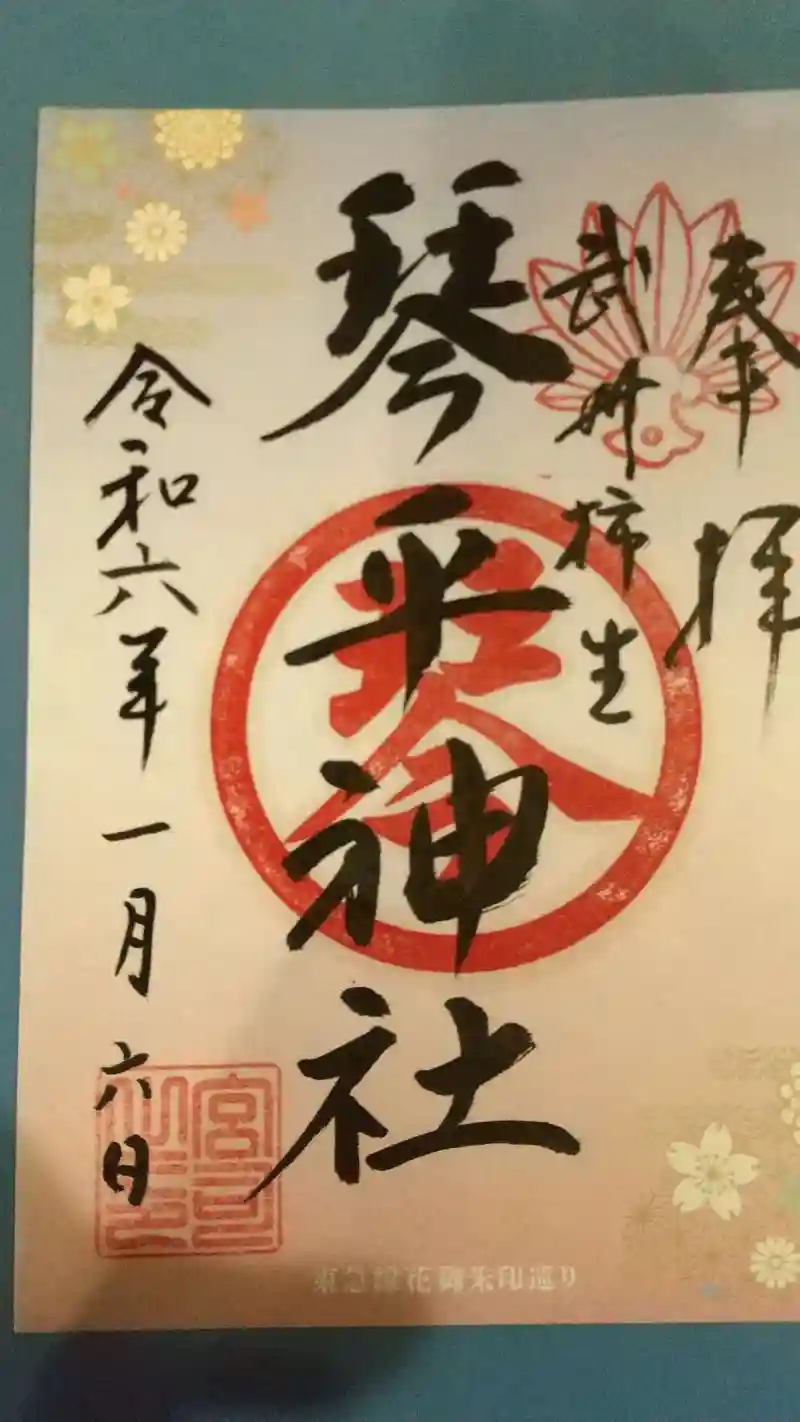 奉拝
武州柿生
琴平神社
令和六年一月六日
琴
宮司
東急線花御朱印巡り